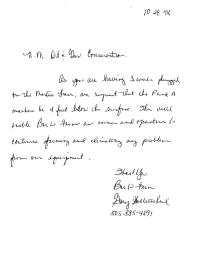 10-28-98
N.M. Oil & Gas Conservation.
As you are having 3 wells plugged
on the Martin Farm, we request that the P and A
marker be 4 feet below the surface. This will
enable Bar W Farm our owner and operation to
continue farming and eliminating any problem
from our equipment.
Thank You
Bar W Farm
Gary
505-885-4691